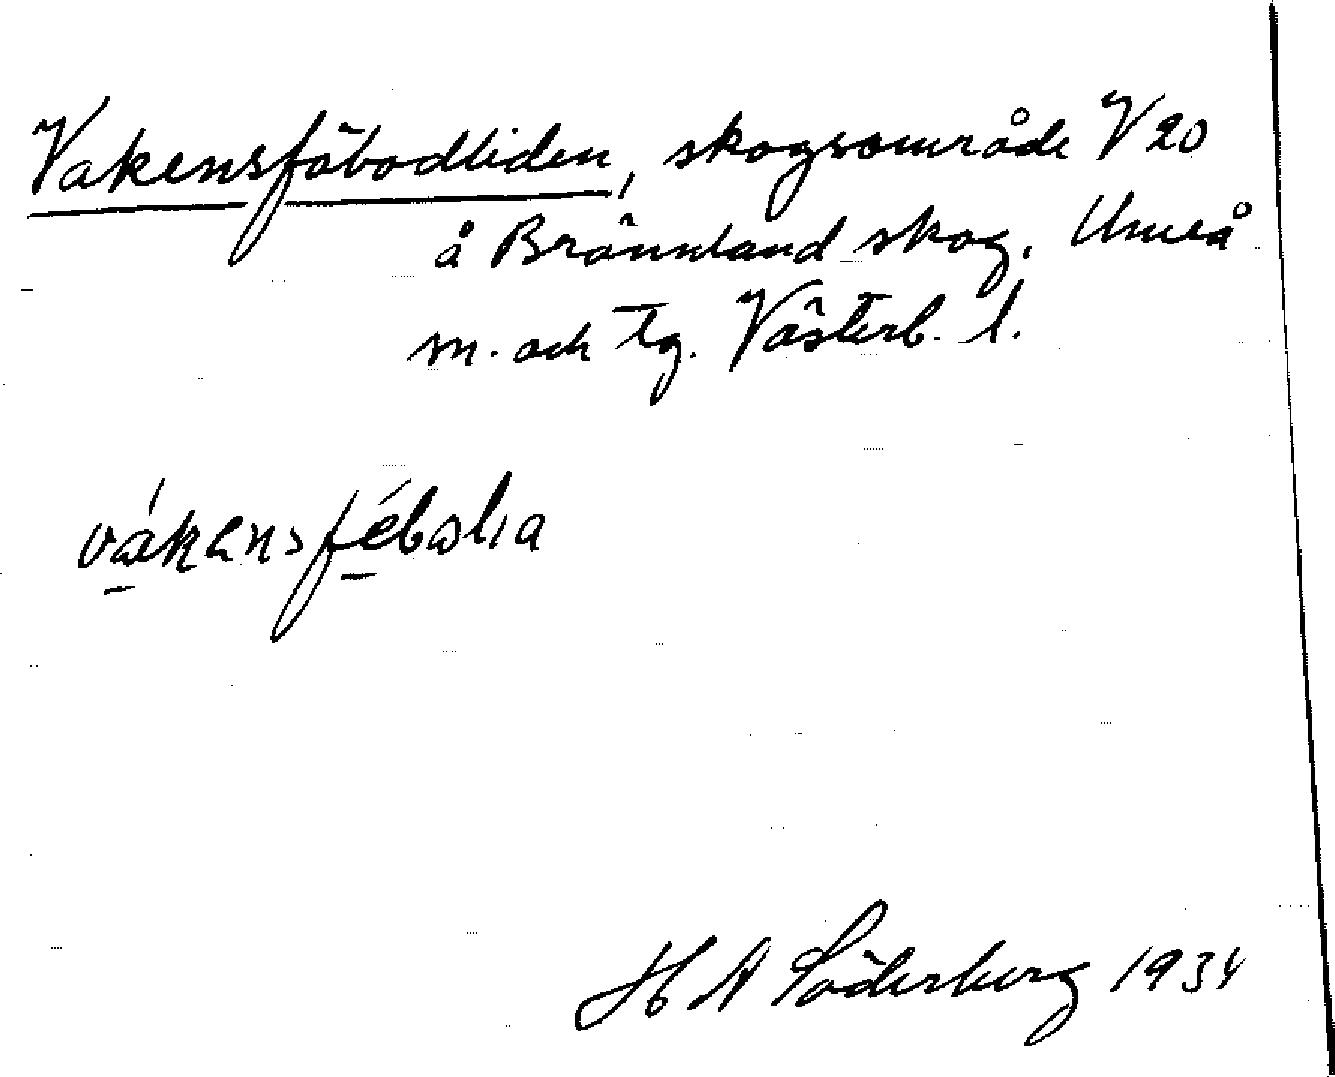 Vakensfäbodliden, skogsområde V 20
å Brännland skog. Umeå
m. och tg. Västerb. l.
H A Söderberg 1934